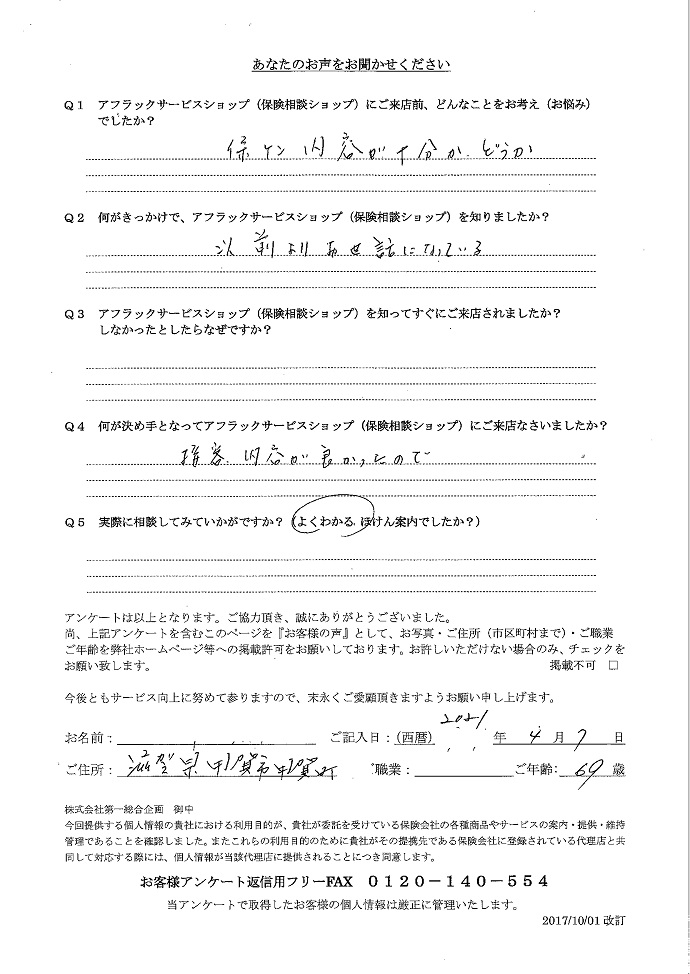 あなたのお声をお聞かせください
Q1 アフラックサービスショップ（保険相談ショップ）にご来店前、どんなことをお考え（お悩み）
でしたか？
保ケン内容が十分か、どうか
Q2 何がきっかけで、アフラックサービスショップ（保険相談ショップ）を知りましたか？
以前よりお世話になっている
Q3 アフラックサービスショップ（保険相談ショップ）を知ってすぐにご来店されましたか？
しなかったとしたらなぜですか？
Q4 何が決め手となってアフラックサービスショップ（保険相談ショップ）にご来店なさいましたか？
接客内容が良かったので
Q5 実際に相談してみていかがですか？（よくわかる ほけん案内でしたか？）
アンケートは以上となります。ご協力頂き、誠にありがとうございました。
尚、上記アンケートを含むこのページを『お客様の声』として、お写真・ご住所（市区町村まで）・ご職業
ご年齢を弊社ホームページ等への掲載許可をお願いしております。お許しいただけない場合のみ、チェックを
お願い致します。 掲載不可 □
今後ともサービス向上に努めて参りますので、末永くご愛顧頂きますようお願い申し上げます。
お名前： ご記入日：（西暦） 2021 年 4 月 7 日
ご住所： 滋賀県甲賀市甲賀町 職業： ご年齢： 69 歳
株式会社第一総合企画 御中
今回提供する個人情報の貴社における利用目的が、貴社が委託を受けている保険会社の各種商品やサービスの案内・提供・維持
管理であることを確認しました。またこれらの利用目的のために貴社がその提携先である保険会社に登録されている代理店と共
同して対応する際には、個人情報が当該代理店に提供されることにつき同意します。
お客様アンケート返信用フリーFAX 0120－140－554
当アンケートで取得したお客様の個人情報は厳正に管理いたします。
2017/10/01 改訂